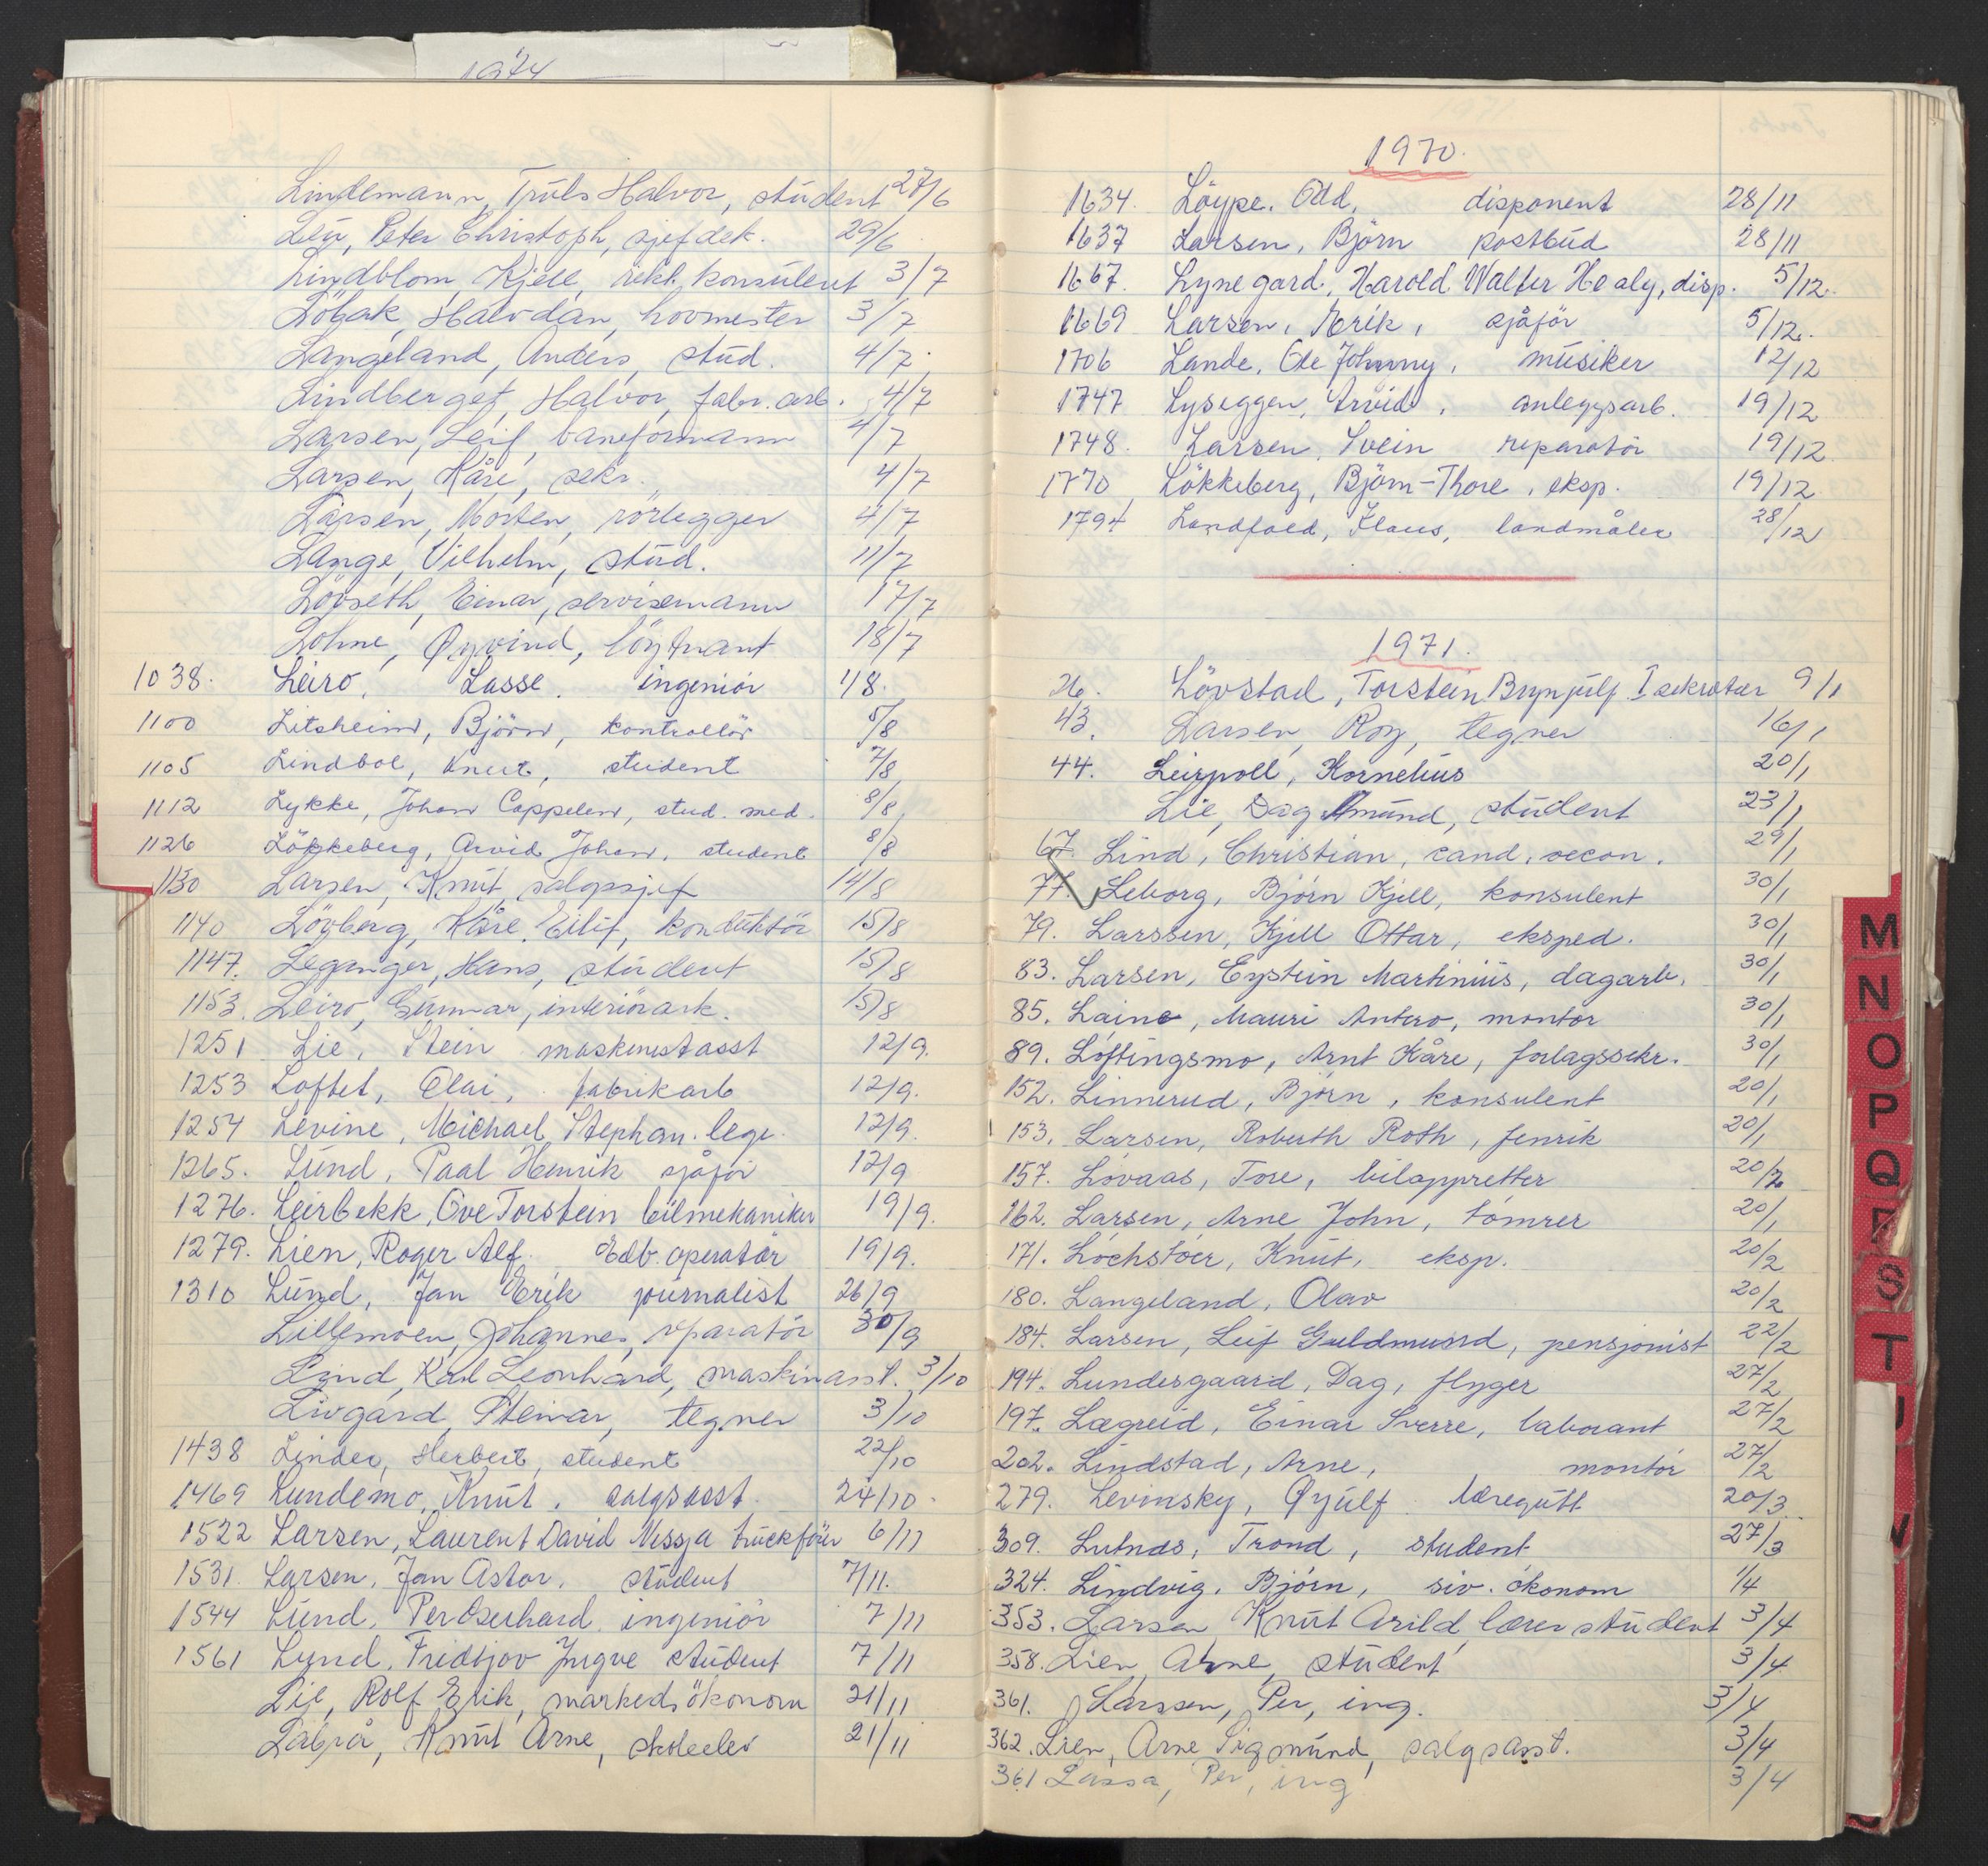 1974
Lindemann, Truls Halvor, student 27/6
Lein, Peter Christoph, sjefdek. 29/6
Lindblom, Kjell, rekl. konsulent 3/7
Löbak, Halvdan, hovmester 3/7
Langeland, Anders, stud. 4/7
Lindberget, Halvor, fabr. arb. 4/7
Larsen, Leif, baneformann 4/7
Larsen, Kåre, sekr. 4/7
Larsen, Morten, rörlegger 4/7
Lange, Vilhelm, stud. 11/7
Lövseth, Einar, servisemann 17/7
Lohne, Øyvind, löytnant 18/7
1038. Leiro, Lasse. ingeniör 1/8.
1100 Litsheim, Björn, kontrollör 5/8
1105 Lindboe, Knut, student 7/8
1112 Lykke, Johan Cappelen, stud. med. 8/8
1126 Lökkeberg, Arvid Johan, student 8/8
1130 Larsen, Knut, salgssjef 14/8
1140 Lövberg, Kåre Eilif, konduktör 15/8
1147. Leganger, Hans, student 15/8
1153. Leiro, Gunnar, interiörark. 15/8
1251 Lie, Stein maskinistasst 12/9.
1253 Loftet, Olai, fabrikarb 12/9.
1254 Levine, Michael Stephan. lege. 12/9.
1265. Lund, Paal Henrik sjåfør 12/9
1276. Leirbekk, Ove Torstein bilmekaniker 19/9.
1279. Lien, Roger Alf. Edb. operatör 19/9.
1310 Lund, Jan Erik journalist 26/9
Lillemoen, Johannes, reparatör 30/9
Lind, Karl Leonhard, maskinasst. 3/10
Livgard, Steinar, tegner 3/10
1438 Linder, Herbert, student 22/10
1469 Lundemo, Knut, salgsasst. 24/10.
1522 Larsen, Laurent David Nessja truckförer 6/11
1531. Larsen, Jan Astor, student 7/11.
1544 Lund, Per Oserhard. ingeniör 7/11
1561 Lund, Fridtjov Yngve student 7/11
Lie, Rolf Erik, markedsökonom 21/11
Labrå, Knut Arne, skoleelev 21/11
1970.
1634. Löype. Odd, disponent 28/11
1637 Larsen, Björn postbud 28/11
1667. Lynegard, Harold Walter Healy, disp. 5/12.
1669 Larsen, Erik, sjåför 5/12.
1706 Lande, Ole Johnny, musiker 12/12
1747 Lyseggen, Arvid, anleggsarb. 19/12
1748. Larsen, Svein reparatör 19/12
1770 Lökkeberg, Björn-Thore, eksp. 19/12
1794 Landfald, Klaus, landmåler 28/12
1971.
26. Lövstad, Torstein Brynjulf I sekretær 9/1
43. Larsen, Roy, tegner 16/1
44. Leirpoll, Kornelius 20/1
Lie, Dag Amund, student 23/1
67. Lind, Christian, cand. oecon. 29/1
77. Leborg, Björn Kjell, konsulent 30/1
79. Larssen, Kjell Ottar, eksped. 30/1
83. Larsen, Eystein Martinius, dagarb. 30/1
85. Laine, Mauri Antero, montör 30/1
89. Löftingsmo, Arnt Kåre, forlagssekr. 30/1
152. Linnerud, Björn, konsulent 20/1
153. Larsen, Roberth Roth, fenrik 20/1
157. Lövaas, Tore, biloppretter 20/2
162. Larsen, Arne John, tömrer 20/1
171. Lochstöer, Knut, eksp. 20/2
180. Langeland, Olav 20/2
184. Larsen, Leif Guldmund, pensjonist 22/2
194. Lundesgaard, Dag, flyger 27/2
197. Lægreid, Einar Sverre, laborant 27/2
202. Lindstad, Arne, montör 27/2
279. Levinsky, Øyulf læregutt 20/3
309. Lutnæs, Trond, student 27/3
324. Lindvig, Björn, siv. ökonom 1/4
353. Larsen Knut Arild, lærerstudent 3/4
358. Lien, Arne, student 3/4
361. Larssen, Per, ing. 3/4
362. Lien, Arne Sigmund, salgsasst. 3/4
361 Lassa, Per, ing 3/4
M
N
O
P
Q
R
S
T
U
V